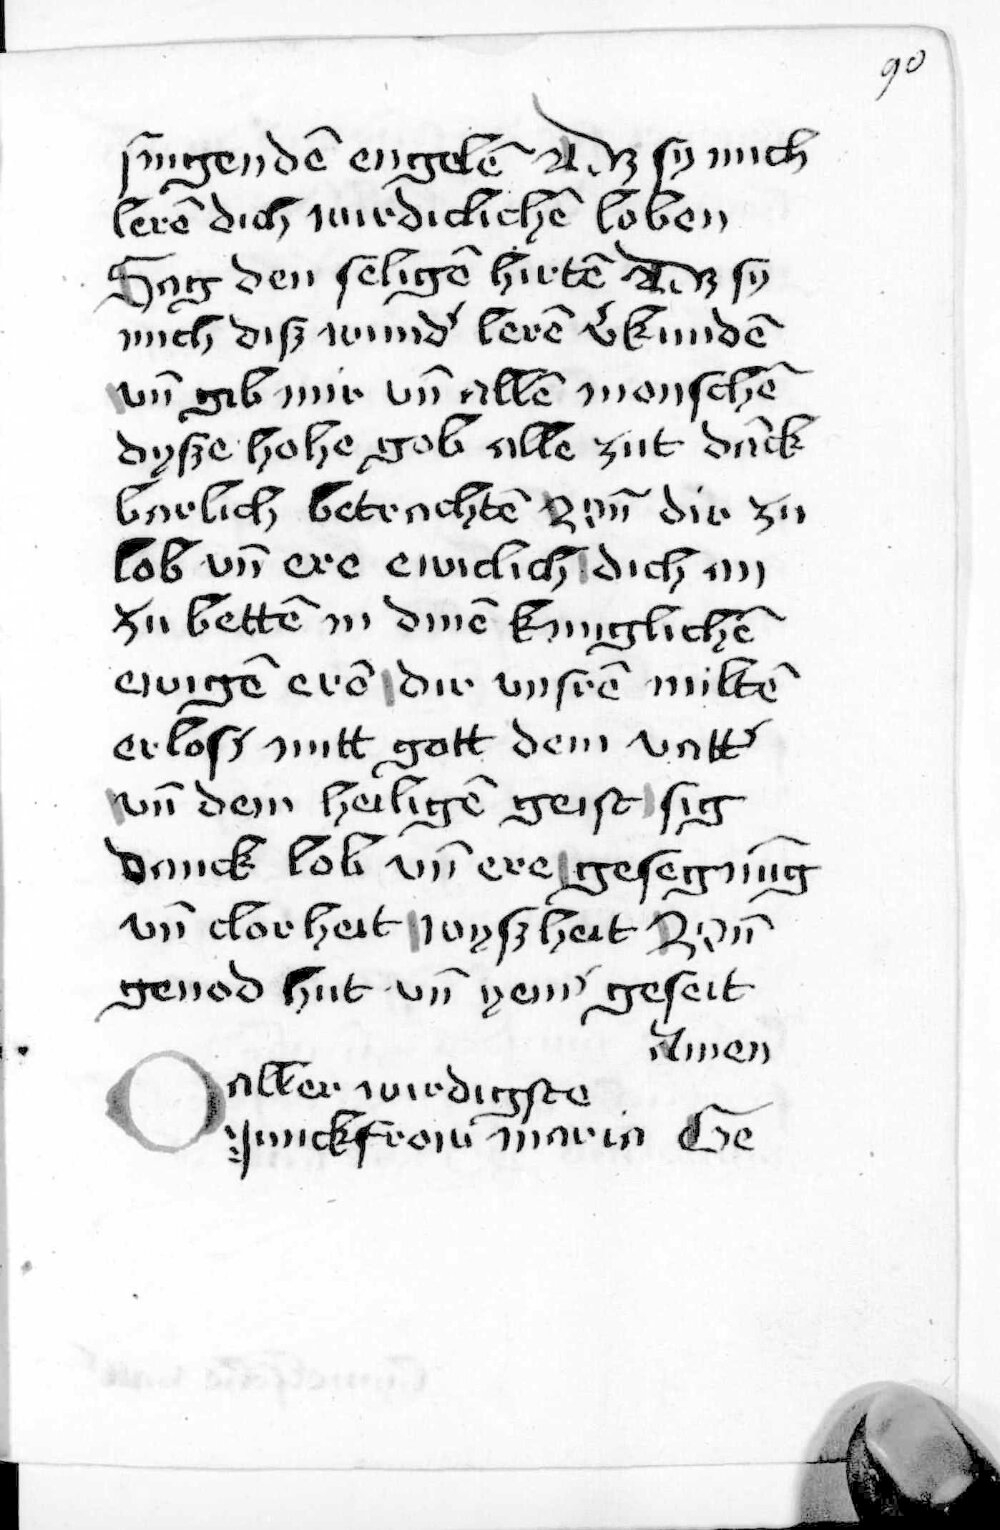 90
singendē engelē Daz sy mich
lerē dich wirdiclichē loben
Sag den seligē hirtē Daz sy
mich disz wund' lerē v'kundē
vn̄ gib mir vn̄ allē menschē
dysze hohe gob alle zit dāck
barlich betrachtē Vn̄ dir zu
lob vn̄ ere ewiclich dich an
zu bettē in dinē kunglichē
ewigē erē dir vnsrē miltē
erlos' mitt gott dem vatt'
vn̄ dem heiligē geist sig
danck lob vn̄ ere gesegnūg
vn̄ clorheit wyszheit Vn̄
genod hut vn̄ yem' geseit
Amen
O aller wirdigste
Junckfrow maria Ge